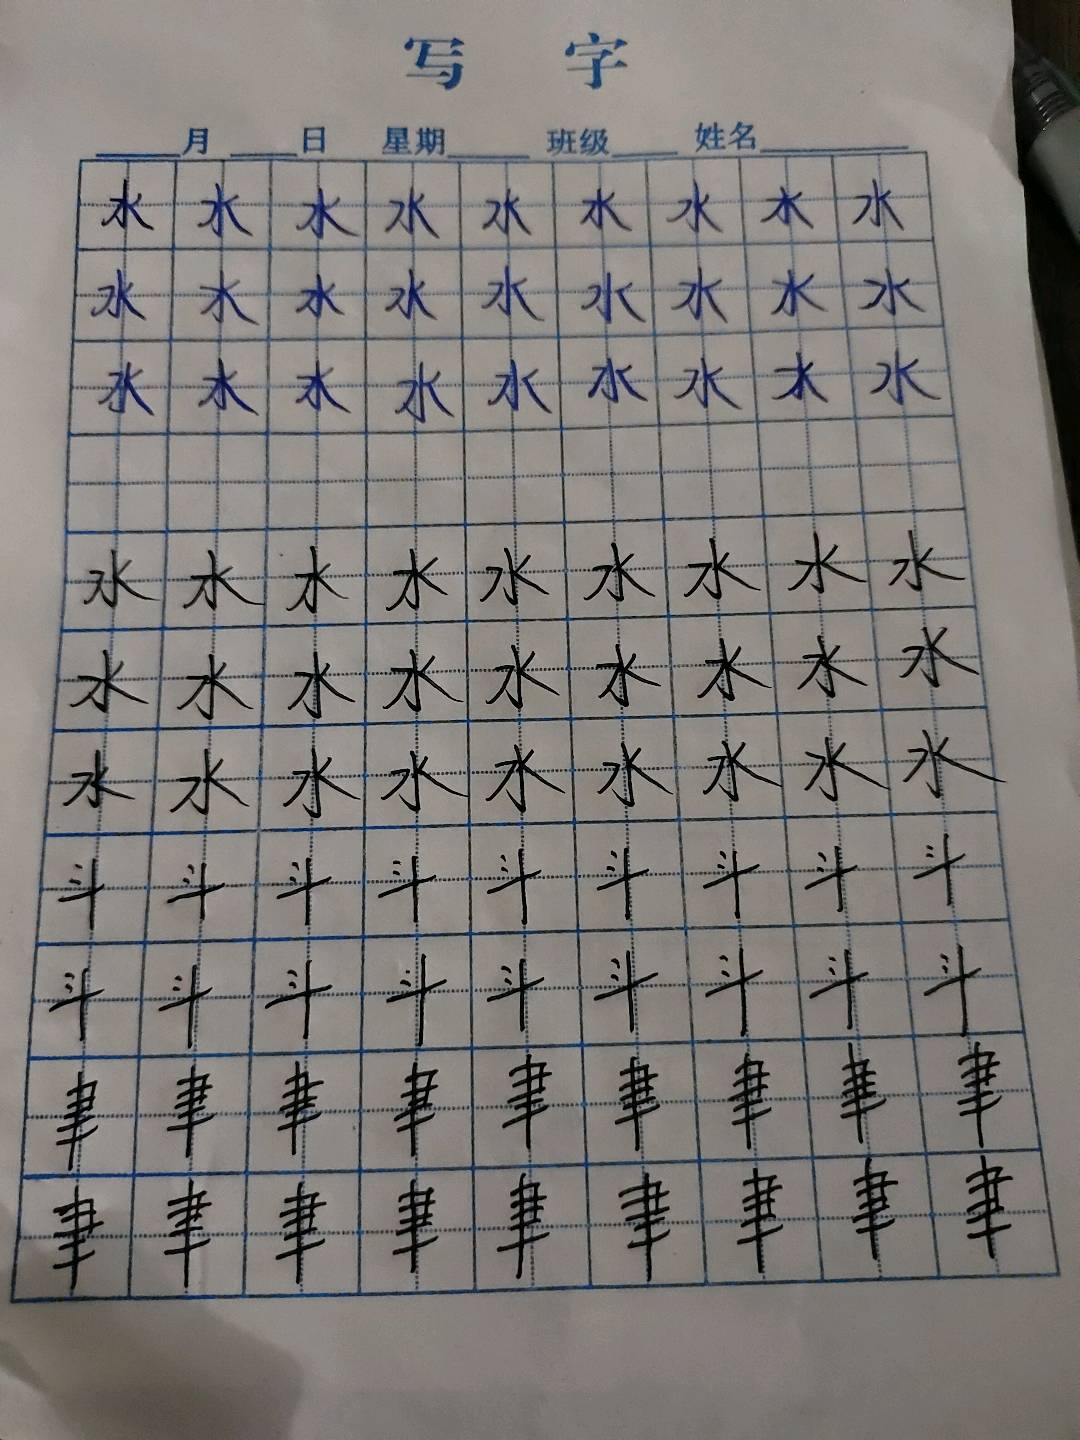 写 字
月 日 星期 班级 姓名
水 水 水 水 水 水 水 水 水
水 水 水 水 水 水 水 水 水
水 水 水 水 水 水 水 水 水
水 水 水 水 水 水 水 水 水
水 水 水 水 水 水 水 水 水
水 水 水 水 水 水 水 水 水
斗 斗 斗 斗 斗 斗 斗 斗 斗
斗 斗 斗 斗 斗 斗 斗 斗 斗